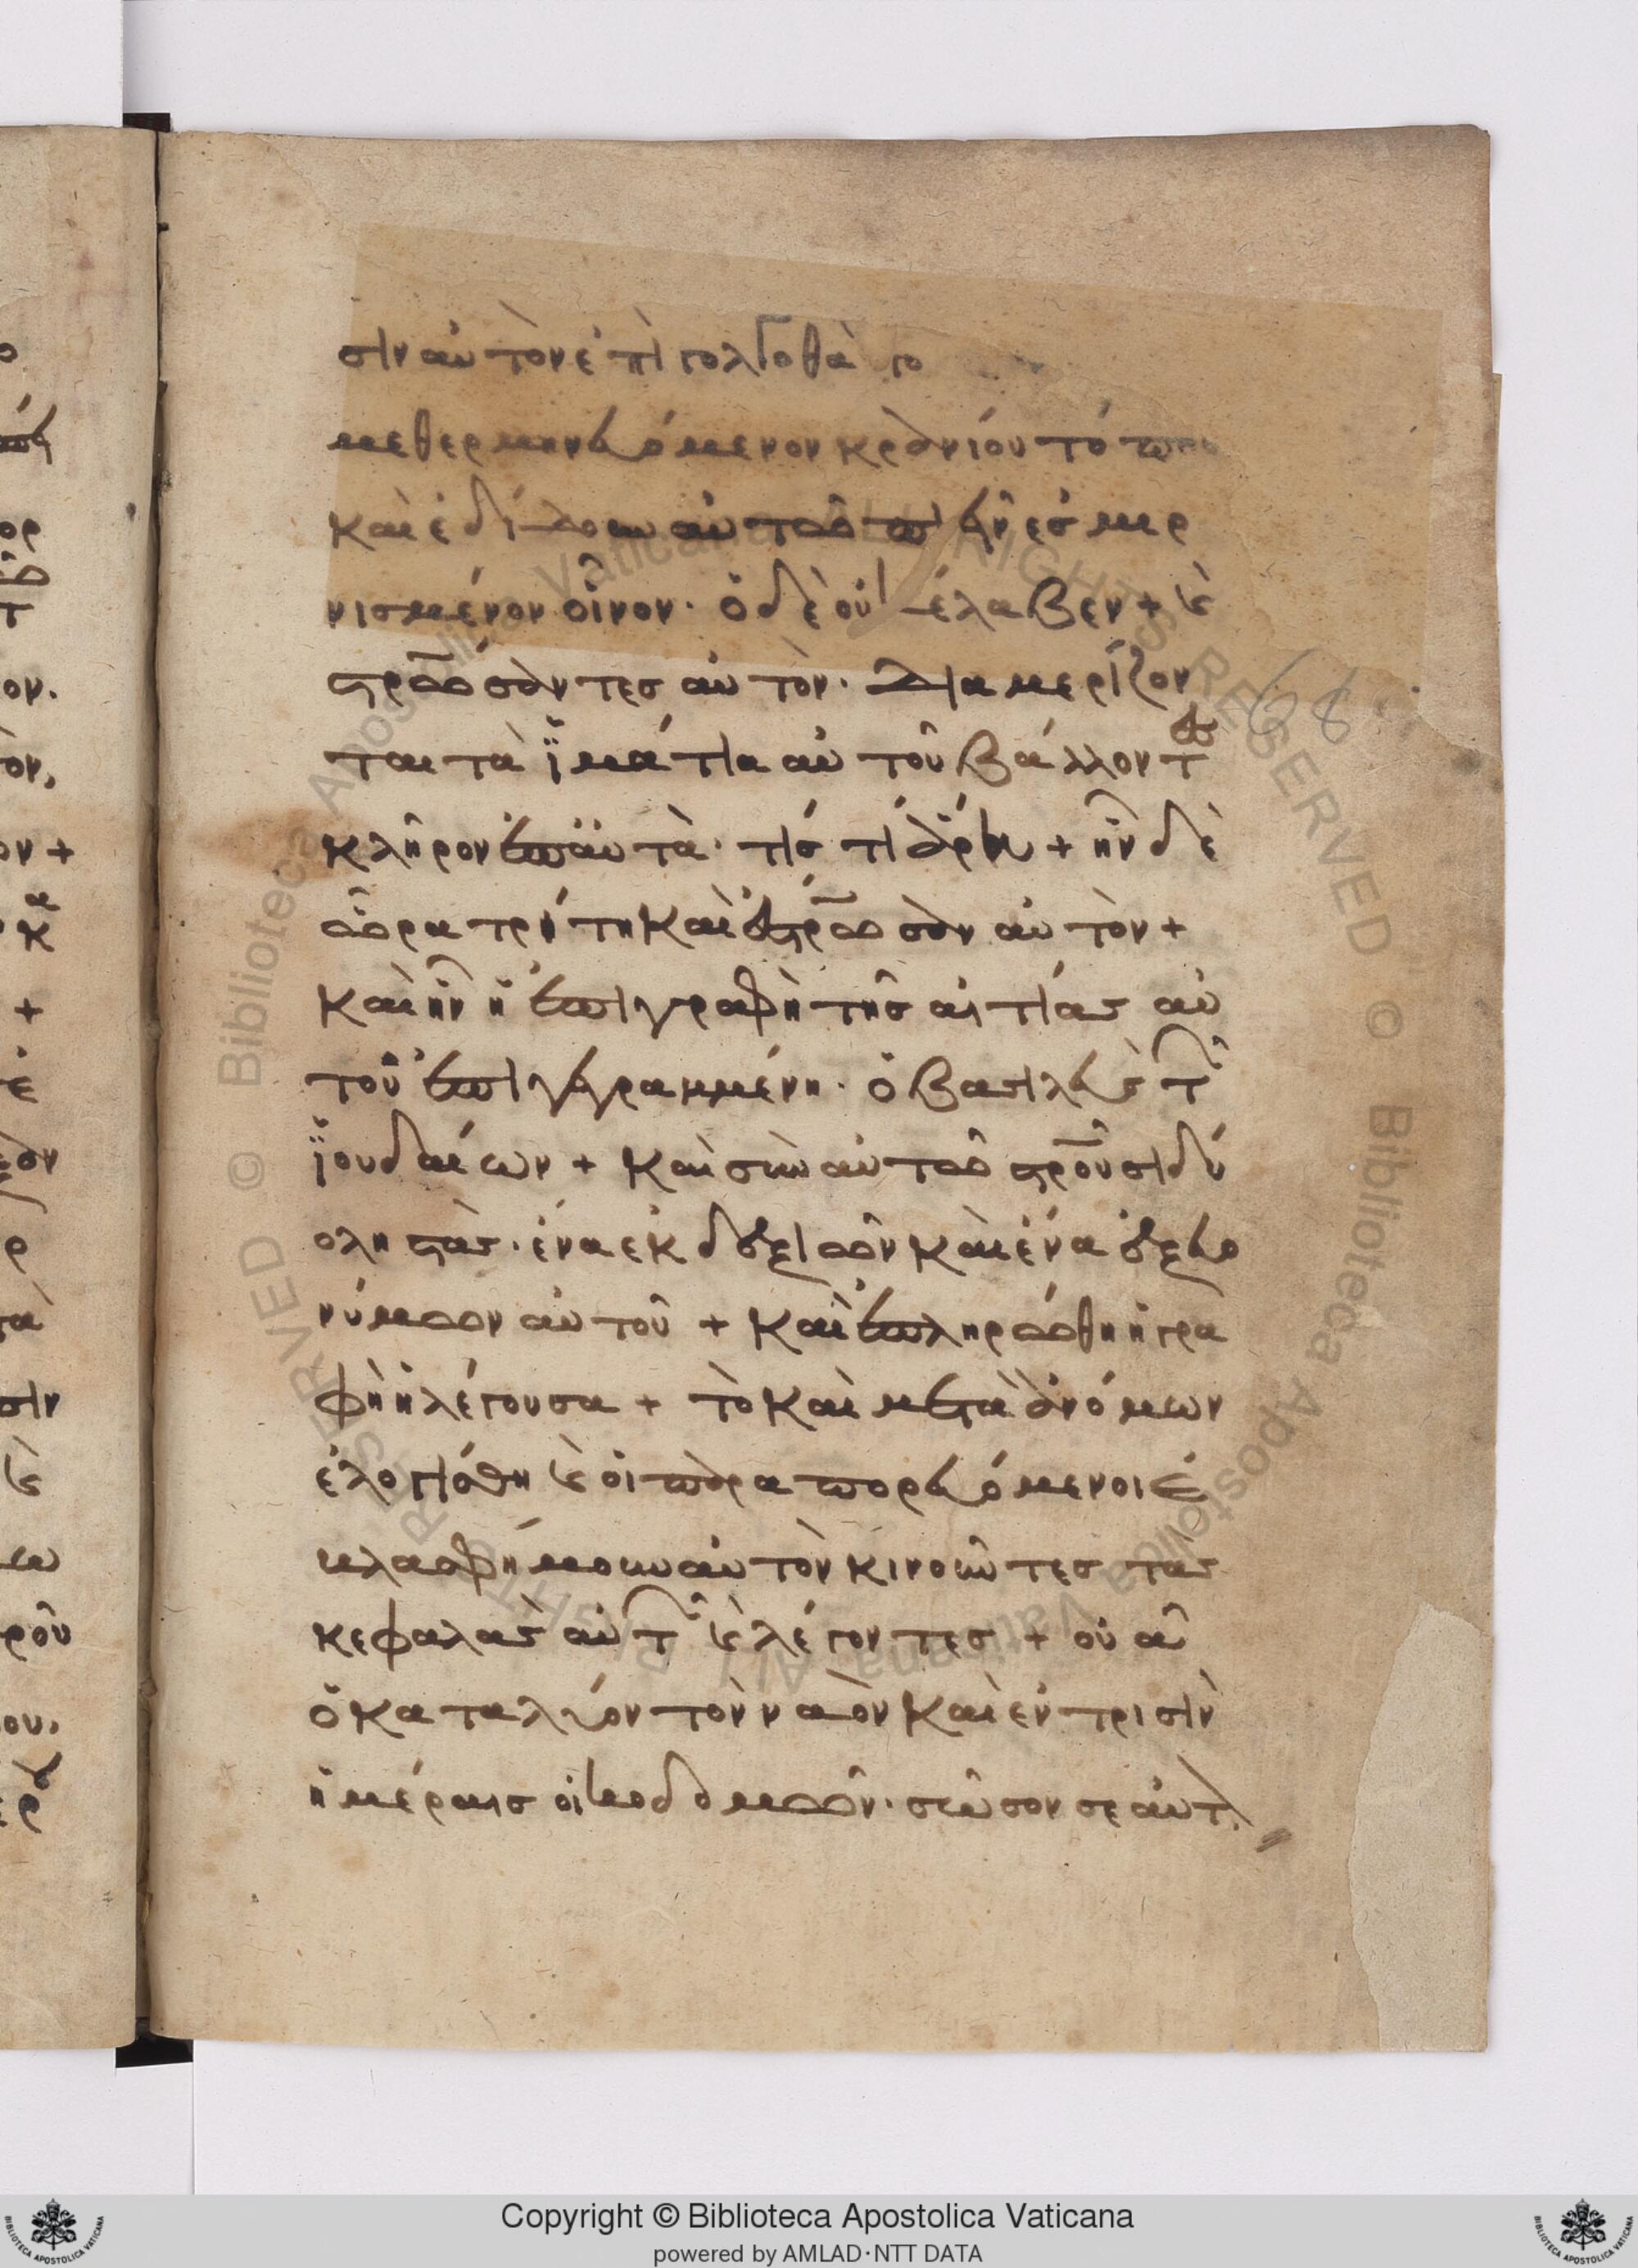 σιν αὐτὸν ἐπὶ γολγοθὰ το
μεθερμηνευόμενον κρανίου τόπο
καὶ ἐδίδουν αὐτῶ πιεῖν ἐσμυρ
νισμένον οἶνον· ὁ δὲ οὐκ ἔλαβεν + καὶ
σρώσαντες αὐτὸν· διαμερίζον
ται τὰ ϊμάτια αὐτοῦ βάλλοντ
κλῆρον ἐπαυτὰ· τίς τί ἄρη + ἦν δὲ
ὥρα τρίτη καὶ ἐσρωσαν αὐτὸν +
καὶ ἦν ἡ ἐπιγραφὴ τῆς αἰτίας αὐ
τοῦ ἐπιγεγραμμένη· ὁ βασιλεὺς τ
ϊουδαίων + καὶ σὺν αὐτῶ σροῦσι δύ
ο ληστὰς· ἕνα ἐκ δεξιῶν καὶ ἕνα ἐξ ευο
νύμων αὐτοῦ + καὶ ἐπληρώθη ἡ γρα
φὴ ἡ λέγουσα + τὸ καὶ μετὰ ἀνόμων
ἐλογίσθη καὶ οἱ παραπορευόμενοι ἐ
βλασφήμουν αὐτὸν κινοῦντες τὰς
κεφαλὰς αὐτ καὶ λέγοντες + οὐὰ
ὁ καταλύων τὸν ναὸν καὶ ἐν τρισὶν
ἡμέραις οἰκοδομῶν· σῶσον σεαυτ
68
Copyright © Biblioteca Apostolica Vaticana
powered by AMLAD·NTT DATA